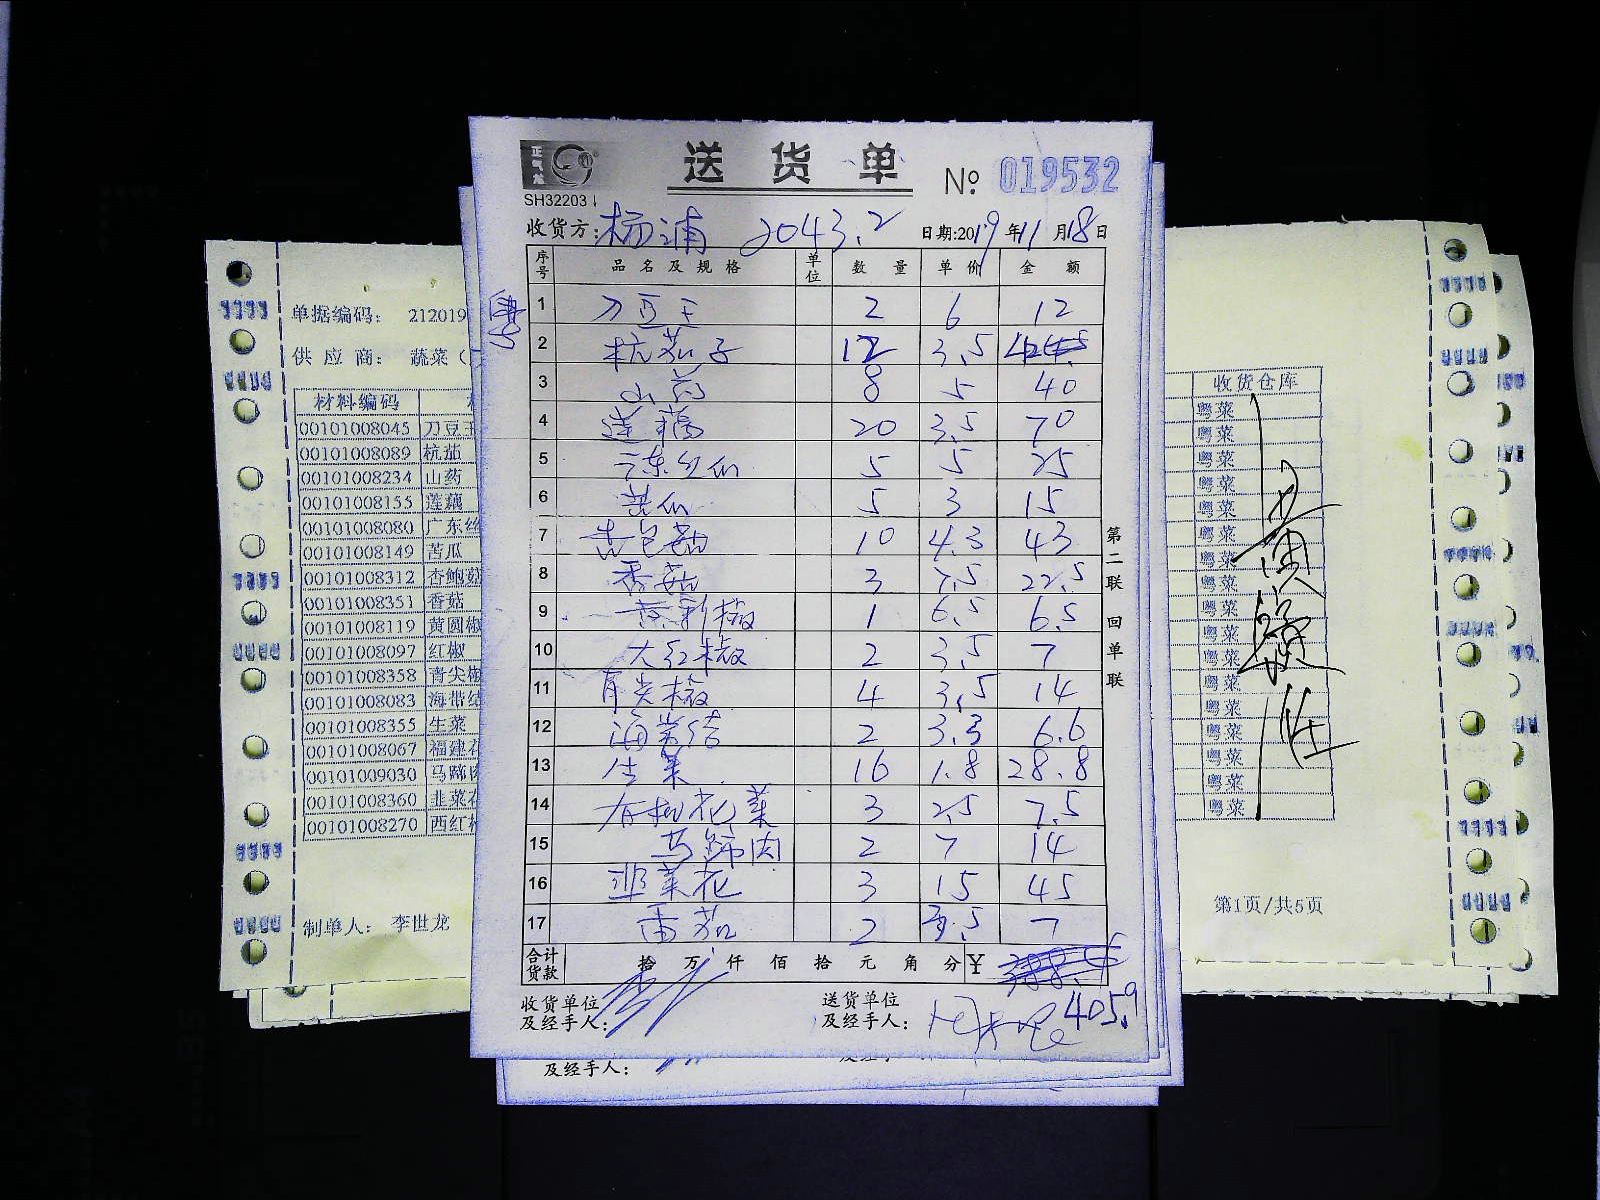 正章
送货单
№ 019532
SH32203
收货方: 杨浦 2043.2 日期:2019年11月18日
序号 品名及规格 单位 数量 单价 金额
1 刀豆王 2 6 12
2 杭茄子 12 3.5
3 山药 8 5 40
4 莲藕 20 3.5 70
5 广东丝瓜 5 5 25
6 苦瓜 5 3 15
7 杏包菇 10 4.3 43
8 香菇 3 7.5 22.5
9 黄彩椒 1 6.5 6.5
10 大红椒 2 3.5 7
11 青尖椒 4 3.5 14
12 海带结 2 3.3 6.6
13 生菜 16 1.8 28.8
14 有机花菜 3 2.5 7.5
15 马蹄肉 2 7 14
16 韭菜花 3 15 45
17 番茄 2 3.5 7
合计货款 拾 万 仟 佰 拾 元 角 分 ¥ 388.4
405.9
收货单位及经手人:
送货单位及经手人:
第二联 回单联
及经手人:
单据编码: 212019
供应商: 蔬菜(
材料编码
00101008045 刀豆王
00101008089 杭茄
00101008234 山药
00101008155 莲藕
00101008080 广东丝
00101008149 苦瓜
00101008312 杏鲍菇
00101008351 香菇
00101008119 黄圆椒
00101008097 红椒
00101008358 青尖椒
00101008083 海带结
00101008355 生菜
00101008067 福建花
00101009030 马蹄肉
00101008360 韭菜花
00101008270 西红柿
制单人: 李世龙
收货仓库
粤菜
粤菜
粤菜
粤菜
粤菜
粤菜
粤菜
粤菜
粤菜
粤菜
粤菜
粤菜
粤菜
粤菜
粤菜
粤菜
粤菜
第1页/共5页